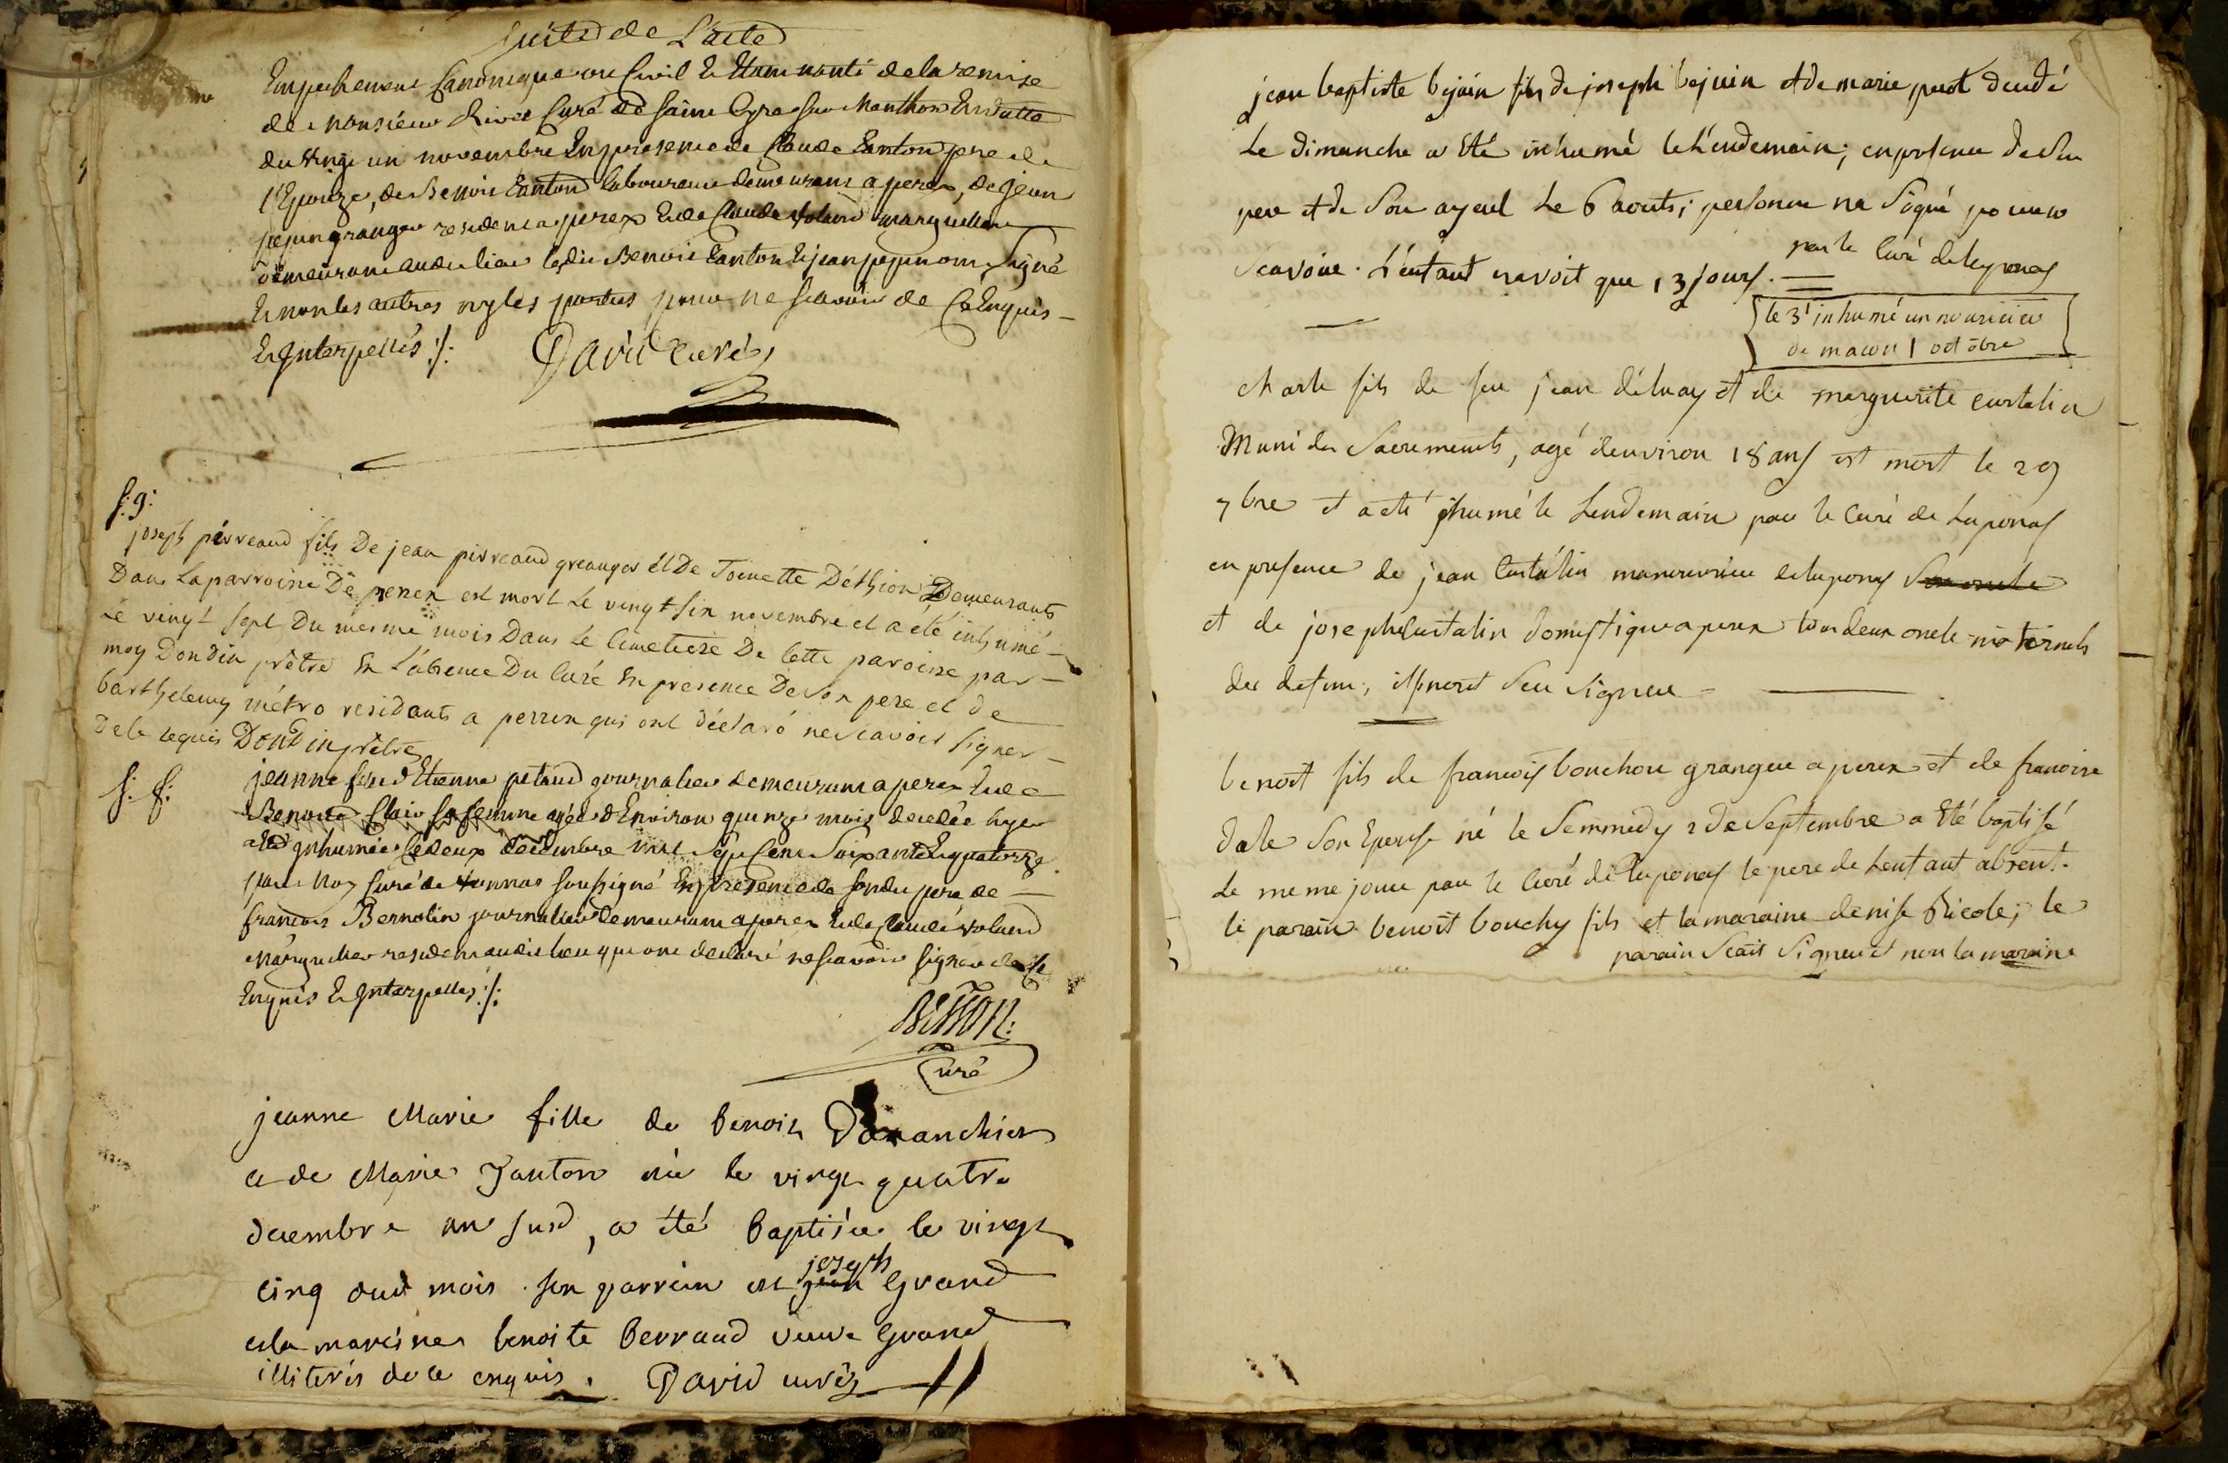 suitte de L'acte
Empechement Canonique ou Civil Et Etant nanti de la remise
de Monsieur Rivet Curé de Saint Cyr sur Manthon En datte
du vingt un novembre En presence de Claude Canton pere de
l'Epouze, de Benoit Canton laboureur demeurant a perex, de jean
pepin granger resident a perex Et de Claude Voluird marguillier
demeurant audit lieu ledit Benoit Canton Et jean pepin ont signé
Et non les autres ny les parties pour ne scavoir de ce Enquis
Et Interpellés ./.
David curé
S: g:
joseph pirreaud fils De jean pirreaud granger et De Toinette Déthion Demeurants
Dans La parroine De perex est mort Le vingt six novembre et a été inhumé
Le vingt sept Du mesme mois Dans Le Cimetiere De Cette paroine par
moy Dondin prêtre En L'absence Du Curé En presence De son pere et de
barthelemy métro residants a perrex qui ont déclaré ne scavoir signer
De ce requis Dondin prêtre
S: f:
jeanne fille d'Etienne petaud journalier demeurant a perex Et de
Benoite Clair sa femme agée d'Environ quinze mois decedée hyer
a été Inhumée le deux decembre mil sept Cent soixante Et quatorze
par Moy Curé de Vonnas soussigné En presence de sondit pere, de
francois Bernolin journalier demeurant a perex Et de Claude Voluird
Marguillier resident audit lieu qui ont declaré ne scavoir signer de ce
Enquis Et Interpellés ./.
Curé
jeanne Marie fille de benoit Dananchier
et de Marie Janton née le vingt quatre
decembre an susd, a été baptisée le vingt
cinq dud mois . son parrein est joseph Grand
et la mareine benoite berraud veuve Grand
illiterés de ce enquis . David curé
jean baptiste bejuin fils de joseph bejuin et de marie perot decedé
Le dimanche a Eté inhumé le L'endemain; en presence de son
pere et de Son ayeul Le 6 aouts; personne na Signé pour ne
Scavoir. L'enfant navoit que 13 jours.
par le Curé de Luponas
le 3 inhumé un nouricier
de macon 1 octobre
charle fils de feu jean délnay et de marguerite curtalin
Muni des Sacrements, agé denviron 18 ans est mort le 29
7bre et a eté jhumé le Lendemain par le Curé de Luponas
en presence de jean Curtalin manouvrier a luponas son oncle
et de joseph Curtalin domestique a perex tous deux oncle maternels
du defunt, illsnont Seu signer
benoit fils de francois bouchou granger a perex et de francoise
dale Son Epouse né le Semmedy 2 de Septembre a Eté baptisé
Le meme jour par le Curé de Luponas le pere de Lenfant absent.
le parain benoit bouchy fils et la maraine denise Ricole; le
parain Scait Signer et non la maraine